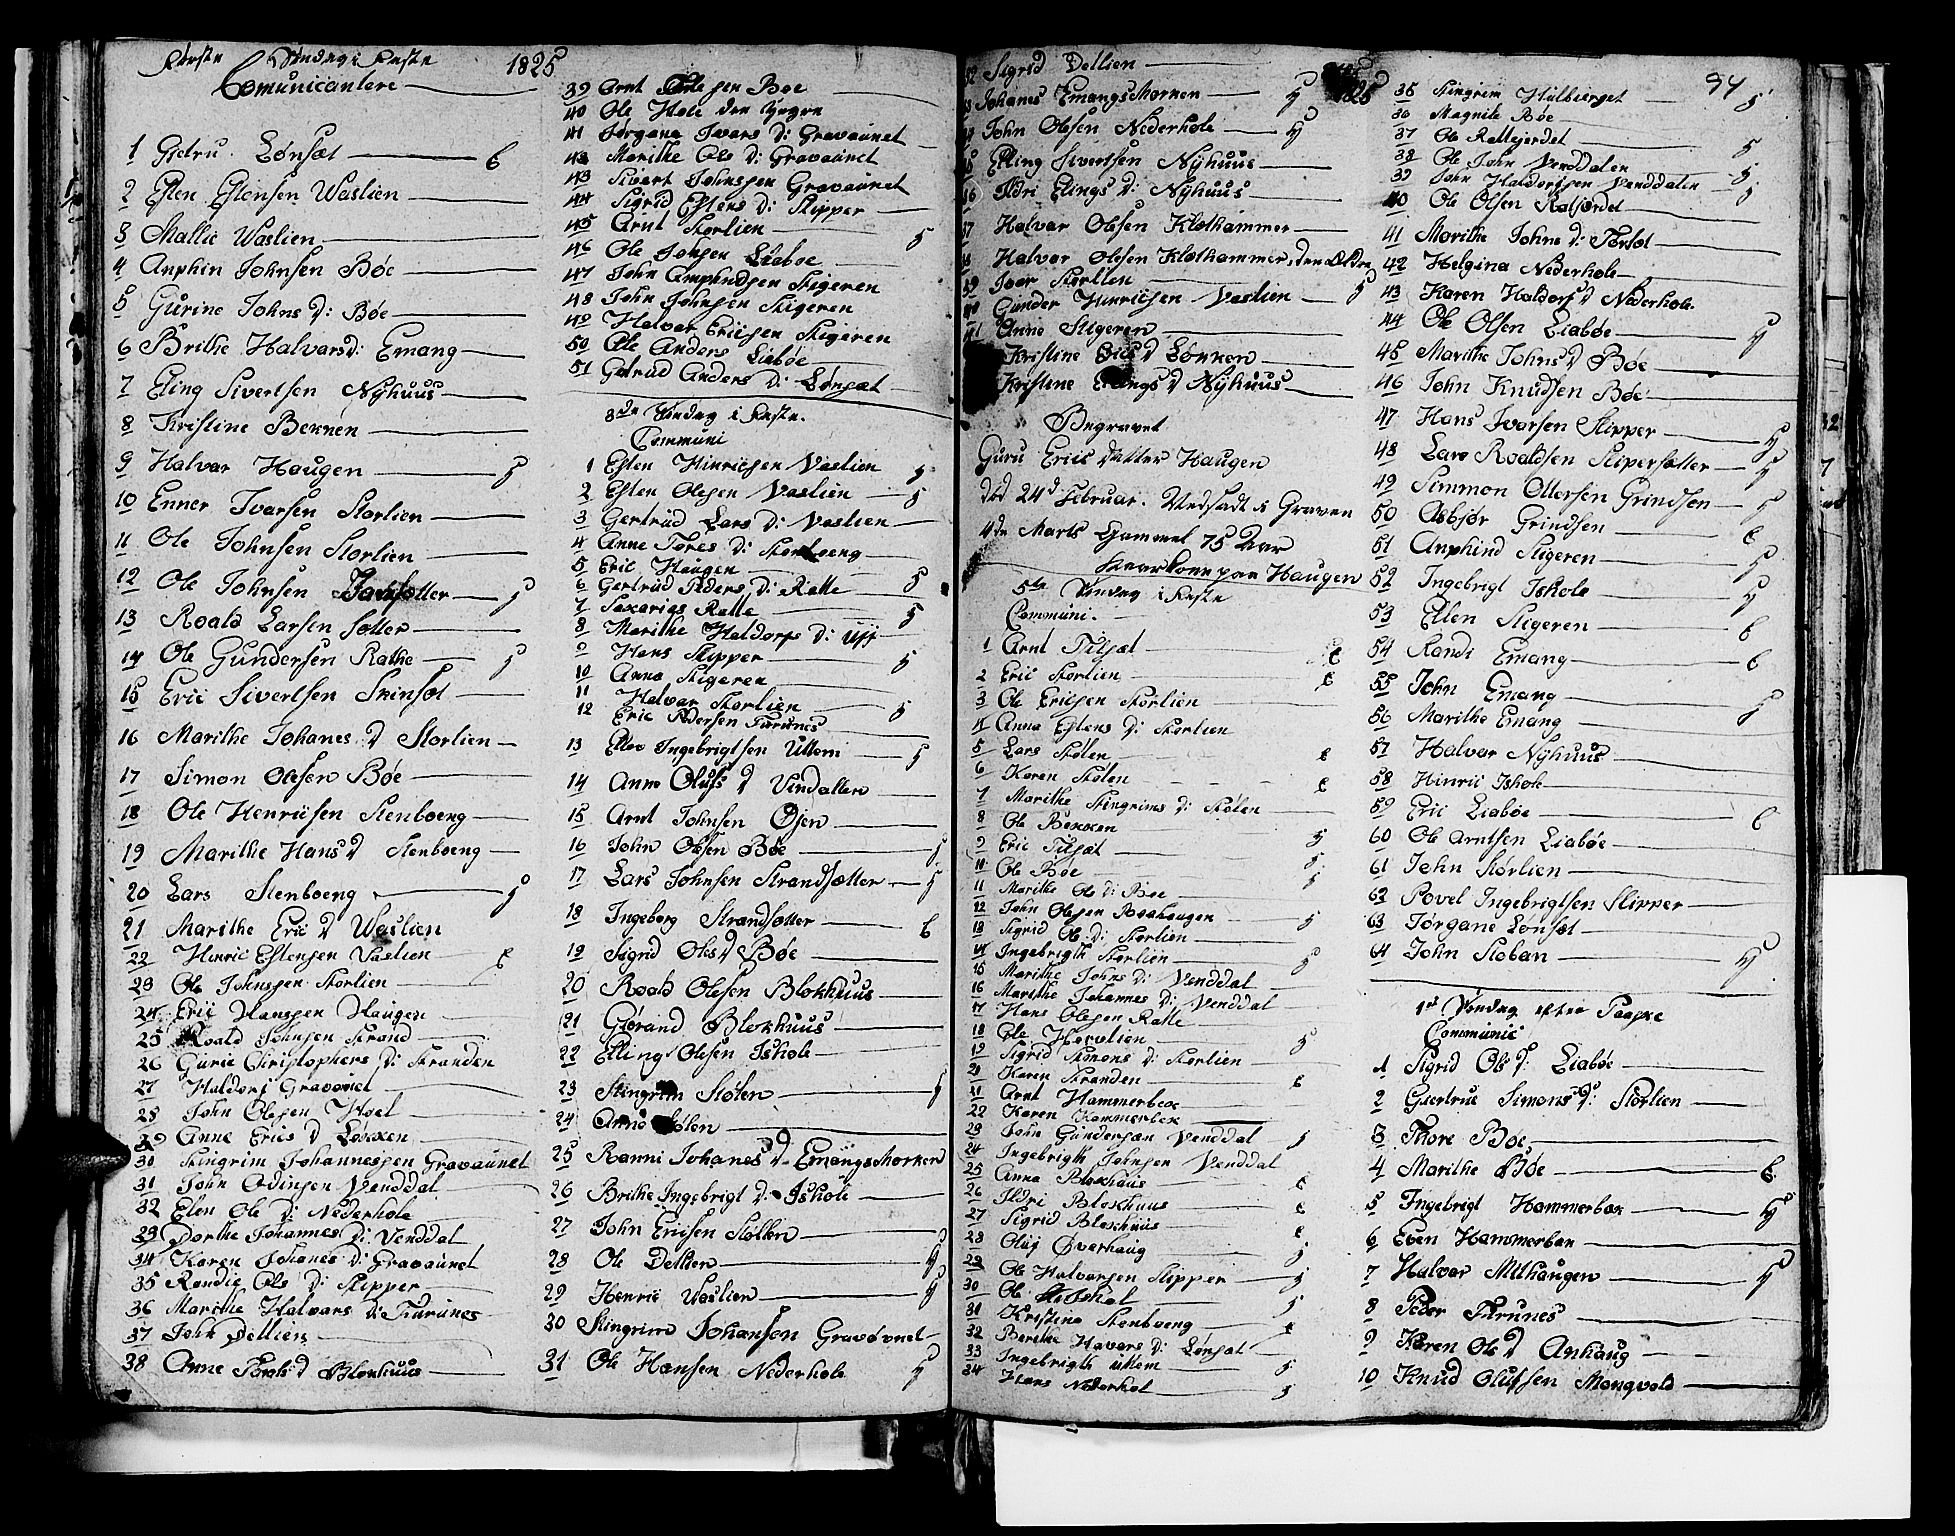 Første Søndag i Faste 1825
Comunicantere
1 Gietru. Lønsæt 6
2 Esten Estensen Waslien
3 Mallie Waslien
4 Anphin Johnsen Bøe
5 Gurine Johns d: Bøe
6 Brithe Halvars d: Emang
7 Eling Sivertsen Nyhuus
8 Kristine Bekken
9 Halvar Haugen 5
10 Enner Ivarsen Storlien
11 Ole Johnsen Storlien
12 Ole Johnsen 5
13 Roald Larsen Sætter
14 Ole Gundersen Rathe 5
15 Eric Sivertsen Skinsæt
16 Marithe Johanes d Storlien
17 Simon Olesen Bøe
18 Ole Henricsen Stenboeng
19 Marithe Hans d Stenboeng
20 Lars Stenboeng 5
21 Marithe Eric d Waslien
22 Hinric Estensen Vaslien 6
23 Ole Johnsen Storlien
24 Eric Hansen Haugen
25 Roald Johnsen Strand
26 Gurie Christophers d: Stranden
27 Haldors Gravaunet
28 John Olesen Hoel
29 Anne Erics d Løkken
30 Stingrim Johannesen Gravaunet
31 John Odinsen Venddal
32 Elen Ole d: Nederhole
33 Dorthe Johannes d: Venddal
34 Karen Johanes d: Gravaunet
35 Randie Ols d: Skipper
36 Marithe Halvars d: Furunes
37 John Dellien
38 Anne d Blokhuus
39 Arnt Bøe
40 Ole Hole den Yngre
41 Jørgene Ivars d: Gravaunet
42 Marithe Ols d: Gravaunet
43 Sivert Johnsen Gravaunet
44 Sigrid Estens d: Skipper
45 Arnt Storlien 5
46 Ole Jonsen Liabøe
47 John Ampundsen Stigeren
48 John Johnsen Stigeren
49 Halvar Ericsen Stigeren
50 Ole Anders Liabøe
51 Getrud Anders d: Lønsæt
3de Søndag i Faste.
Communi
1 Esten Hinricsen Vaslien 5
2 Esten Olesen Vaslien 5
3 Gertrud Lars d: Vaslien
4 Anne Tores d: Stenboeng
5 Eric Haugen
6 Gertrud Peders d: Ratte 5
7 Saxarias Ratte 5
8 Marithe Haldors d:
9 Hans Skipper 5
10 Anne Stigeren
11 Halvar Storlien 5
12 Eric Pedersen Furunes
13 Ingebrigtsen Uttem 5
14 Anne Olufs d Vindallen
15 Arnt Johnsen Øjen
16 John Olesen Bøe 5
17 Lars Johnsen Strandsætter 5
18 Ingeborg Strandsætter 6
19 Sigrid Ols d Bøe
20 Roald Olesen Blokhuus
21 Gjørand Blokhuus
22 Elling Olesen Ishole
23 Stingrim Stølen 5
24 Anne Stølen
25 Ranni Johanes d Emangs Marken
26 Brithe Ingebrigt d: Ishole
27 John Ericsen Stølen 5
28 Ole Dellien 5
29 Henric Waslien 5
30 Stingrim Johansen Gravovnet
31 Ole Hansen Nederhole 5
32 Sigrid Dellien
33 Johanes Emangs Marken 5
34 John Olesen Nederhole 5
35 Elling Sivertsen Nyhuus
36 Ildri Elings d: Nyhuus
37 Halvar Olesen Klethammer
38 Halvor Olesen Klethammer, den Ældre
39 Ivar Storlien 5
40 Gunder Hinricsen Vaslien 5
41 Anne Stigeren
Kristine Erics d Løkken
Kristine Elings d Nyhuus
Begravet
Guru Erics datter Haugen
død 24d Februar. Nedsadt i Graven
4de Marts Gammel 75 Aar
paa Haugen
5te Søndag i Faste
Communi.
1 Arnt Tilset 6
2 Eric Storlien 6
3 Ole Ericsen Storlien
4 Anne Estens d: Storlien
5 Lars Stølen 6
6 Karen Stølen 6
7 Marithe Stingrims d: Stølen
8 Ole Bekken
9 Eric Tilset 5
10 Ole Bøe 5
11 Marithe Ole d: Bøe 5
12 John Olesen Roahaugen
13 Sigrid Ole d: Storlien 5
14 Ingebrigth Storlien
15 Marithe Johns d: Venddal 5
16 Marithe Johannes d: Venddal
17 Hans Olesen Ratte
18 Ole Horvlien 5
19 Sigrid Simons d: Storlien
20 Karen Stranden 6
21 Arnt Hammerbek
22 Karen Hammerbek
23 John Gundersen Venddal 5
24 Ingebrigth Johnsen Venddal
25 Anne Blokhuus 6
26 Ildri Blokhuus
27 Sigrid Blokhuus 6
28 Oluf Øverhaug 5
29 Ole Halvarsen Skipper 5
30 Ole 5
31 Kristine Stenboeng 6
32 Berethe Havars d: Lønsæt
33 Ingebrigth Uttem 5
34 Hans Nederhol 5
1825
94
35 Stingrim Hulberget 5
36 Magnile Bøe
37 Ole Rattejordet 5
38 Ole John Venddalen
39 John Haldorsen Venddalen 5
40 Ole Olsen Ratjordet 5
41 Marithe Johns d: Torset
42 Helgina Nederhole
43 Karen Haldors d Nederhole
44 Ole Olsen Liabøe 5
45 Marithe Johns d Bøe
46 John Knudsen Bøe
47 Hans Ivarsen Skipper 5
48 Lars Roaldsen Skipersætter 5
49 Simmon Ottersen Grindsen 5
50 Asbjør Grindsen 6
51 Anphind Stigeren 5
52 Ingebrigt Ishole 5
53 Ellen Stigeren 6
54 Randi Emang 6
55 John Emang 5
56 Marithe Emang
57 Halvar Nyhuus
58 Hinric Ishole
59 Eric Liabøe 6
60 Ole Arntsen Liabøe
61 John Størlien
62 Povel Ingebrigtsen Skipper
63 Jørgane Lønset
64 John Stoban 5
1st Søndag efter Paaske
Communic
1 Sigrid Ols d: Liabøe
2 Giertrue Simons d: Storlien
3 Thore Bøe
4 Marithe Bøe 6
5 Ingebrigt Hammerbek 5
6 Even Hammerbek
7 Halvar Mithaugen 5
8 Peder Furunes
9 Karen Ols d Anhaug
10 Knud Olufsen Mongvold